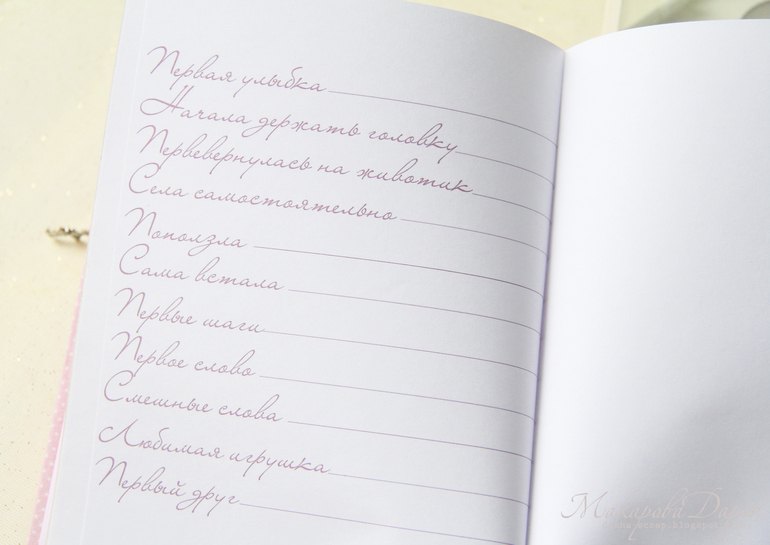 Первая улыбка
Начала держать головку
Первевернулась на животик
Села самостоятельно
Поползла
Сама встала
Первые шаги
Первое слово
Смешные слова
Любимая игрушка
Первый друг
Макарова